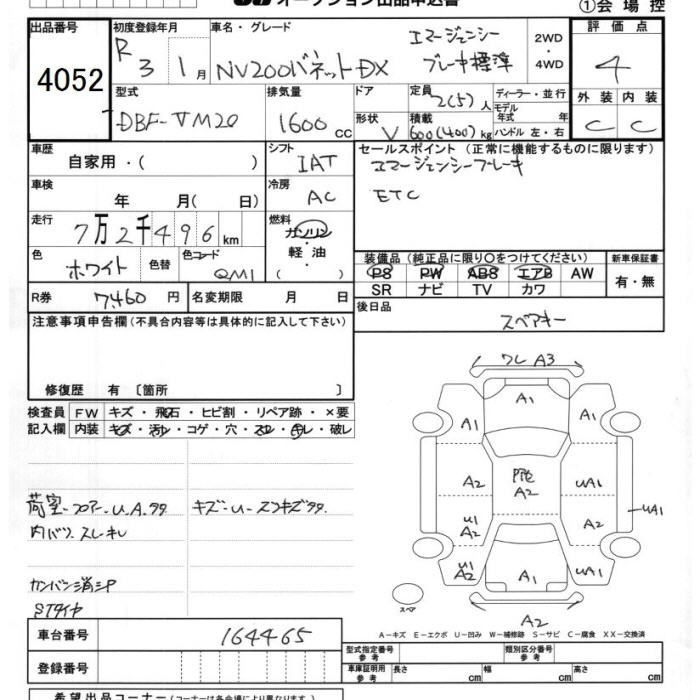 オークション出品申込書
①会場控
出品番号 4052
初度登録年月 R 3 1月
車名・グレード NV200バネット DX
エマージェンシー
ブレーキ標準
2WD・4WD
評価点 4
外装 内装
C C
型式 DBF-VM20
排気量 1600 cc
ドア形状 V
定員 2(5)人
積載 600(400)kg
ディーラー・並行
モデル年式 年
ハンドル 左・右
車歴 自家用・( )
シフト IAT
セールスポイント (正常に機能するものに限ります)
エマージェンシーブレーキ
ETC
車検 年 月( 日)
冷房 AC
走行 7万2千496km
燃料 ガソリン
軽油
( )
色 ホワイト 色替 色コード QM1
装備品 (純正品に限り○をつけてください) 新車保証書
PS PW ABS エアB AW 有・無
SR ナビ TV カワ
R券 7,460 円 名変期限 月 日
後日品
スペアキー
注意事項申告欄(不具合内容等は具体的に記入して下さい)
修復歴 有 〔箇所 〕
検査員記入欄
FW キズ・飛石・ヒビ割・リペア跡・×要
内装 キズ・汚レ・コゲ・穴・スレ・破レ
ワレ A3
A1
A1 A1
A2 A2 UA1
UA1
U1 A2 A2
U1 A2 A1 UA1
A2
荷室-フロアー-U.A.
キズ-U-
カンバン消シP
STタイヤ
スペア
A-キズ E-エクボ U-凹み W-補修跡 S-サビ C-腐食 XX-交換済
車台番号 164465
登録番号
型式指定番号 類別区分番号
車庫証明用参考 長さ cm 幅 cm 高さ cm
希望出品コーナー(コーナーは各会場により異なります)